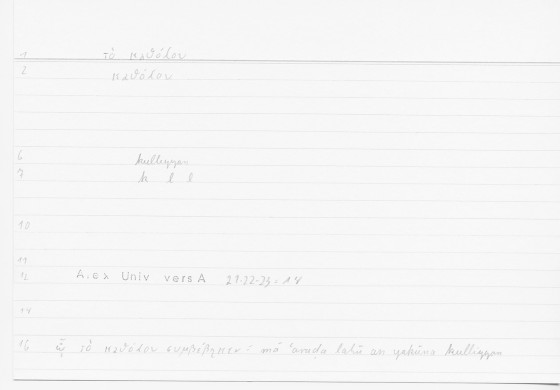 1 τὸ καθόλου
2 καθόλου
6 kulliyyan
7 k l l
10
11
12 A.ex Univ vers A 21-22-23.
14
16 ᾧ τὸ καθόλου συμβέβηκεν: mā ʿaraḍa lahū an yakūna kulliyyan